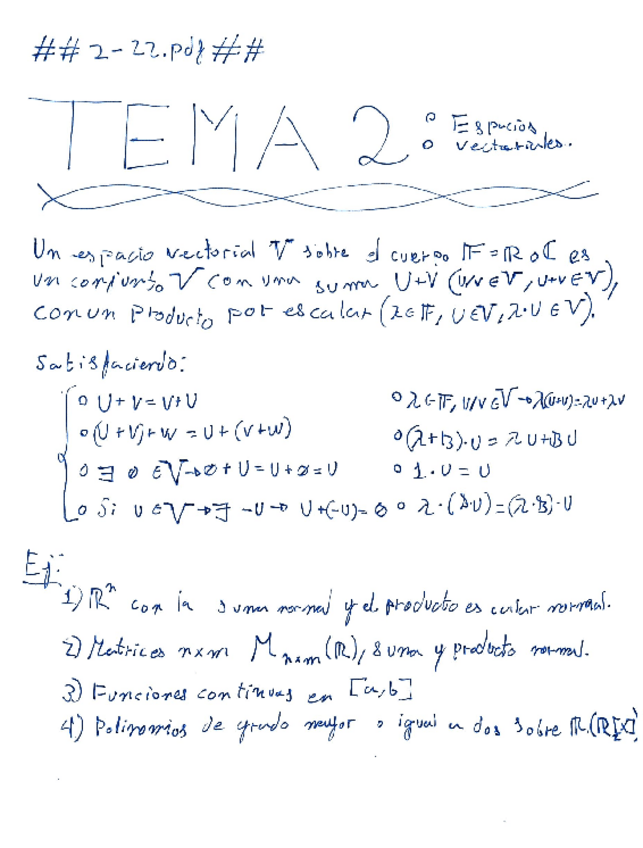 ## 2-22.pdf ##
TEMA 2 : Espacios
vectoriales.
Un espacio vectorial V sobre el cuerpo F = R o C es
un conjunto V con una suma U+V (U/V ∈ V, U+V ∈ V),
con un producto por escalar (λ ∈ F, U ∈ V, λ·U ∈ V).
Satisfaciendo:
o U + V = V + U
o λ ∈ F, U/V ∈ V → λ(U+V) = λU + λV
o (U + V) + W = U + (V + W)
o (λ + B)·U = λU + BU
o ∃ ∅ ∈ V → ∅ + U = U + ∅ = U
o 1·U = U
o Si U ∈ V → ∃ -U → U + (-U) = ∅
o λ·(B·U) = (λ·B)·U
Ej:
1) Rⁿ con la suma normal y el producto escalar normal.
2) Matrices n×m M n×m (R), suma y producto normal.
3) Funciones continuas en [a,b]
4) Polinomios de grado o igual a dos sobre R (R[x]